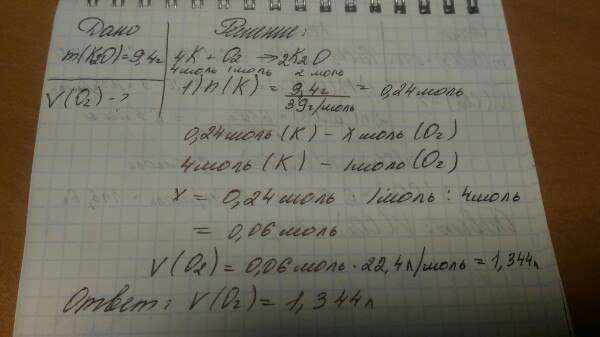 Дано
Решение:
m(K2O)=9,4г
4K + O2 → 2K2O
4моль 1моль 2 моль
V(O2) - ?
1) n(K) = 9,4г / 39г/моль = 0,24моль
0,24моль (K) - x моль (O2)
4моль (K) - 1моль (O2)
x = 0,24моль · 1моль : 4моль
= 0,06моль
V(O2) = 0,06моль · 22,4л/моль = 1,344л
Ответ: V(O2) = 1,344л